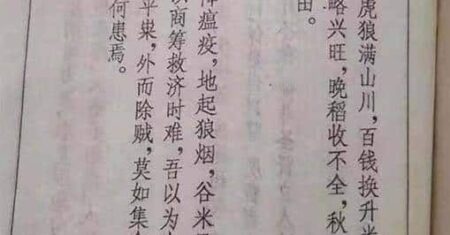 虎狼满山川，百钱换升
略兴旺，晚稻收不全，秋
田。
瘟疫，地起狼烟，谷米
商筹救济时难，吾以为
平粜，外而除贼，莫如集
何患焉。